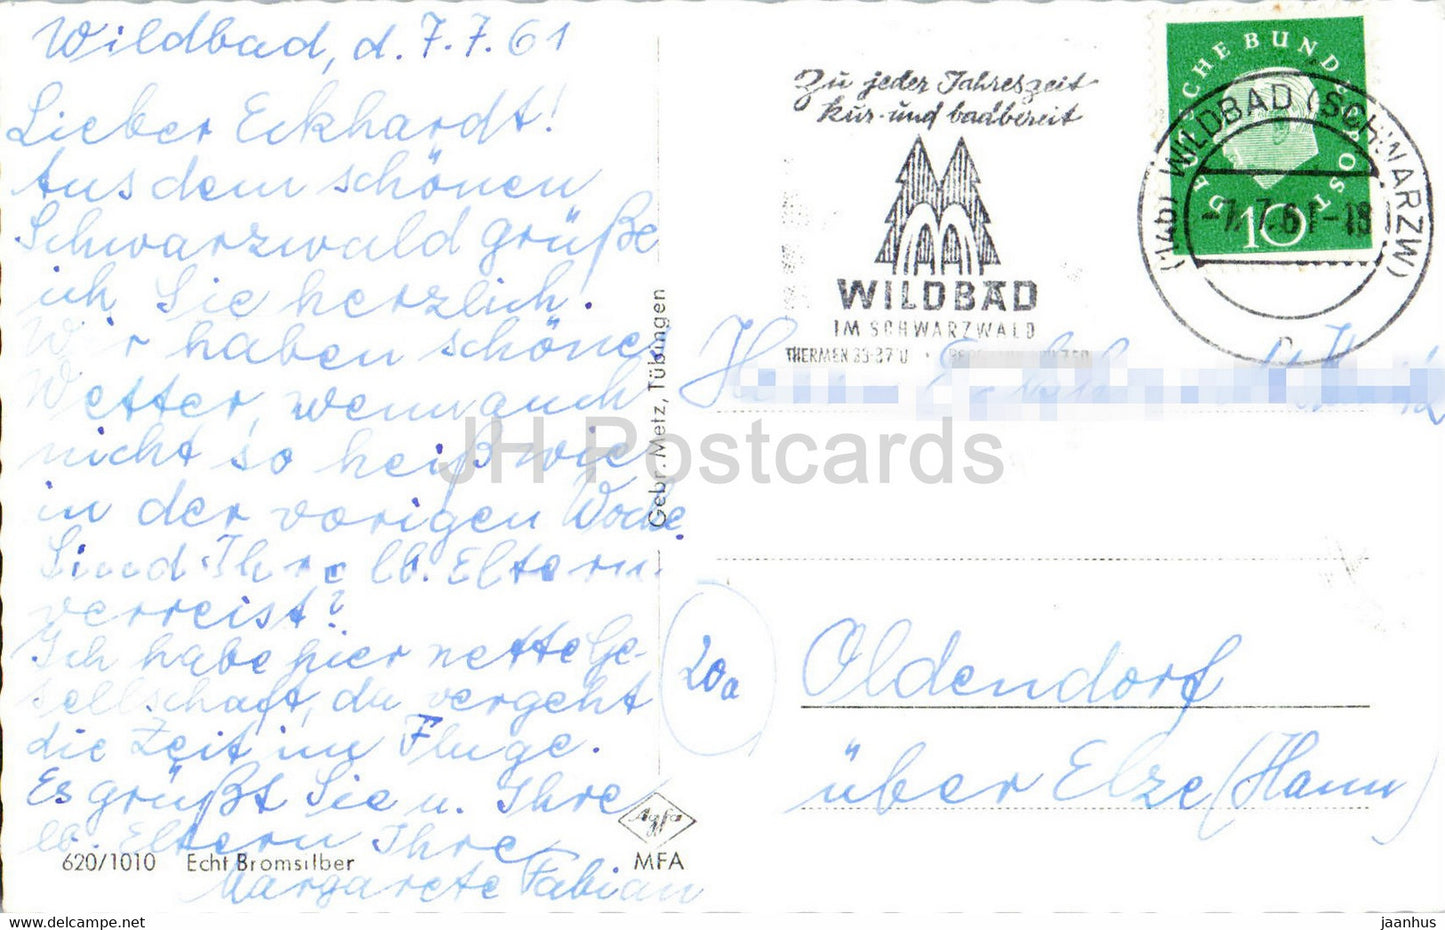 Wildbad, d. 7.7.61
Lieber Eckhardt!
Aus dem schönen
Schwarzwald grüße
ich Sie herzlich!
Wir haben schönes
Wetter, wenn auch
nicht so heiß wie
in der vorigen Woche.
Sind Ihre lb. Eltern
verreist?
Ich habe hier nette Ge-
sellschaft, da vergeht
die Zeit im Fluge.
Es grüßt Sie u. Ihre
lb. Eltern Ihre
Margarete Fabian
620/1010 Echt Bromsilber
Gebr. Metz, Tübingen
Agfa
MFA
Zu jeder Jahreszeit
kur- und badbereit
WILDBAD
IM SCHWARZWALD
THERMEN 35-37 U
DEUTSCHE BUNDESPOST
10
(14b) WILDBAD (SCHWARZW)
-7.7.61-18
Herrn
20a
Oldendorf
über Elze (Hann)
JH Postcards
www.delcampe.net
jaanhus